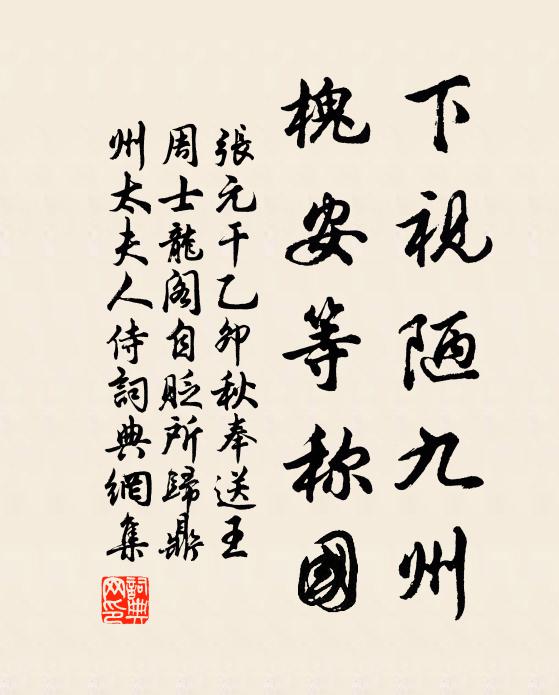 下視陋九州
槐安等称國
張元干乙卯秋奉送王
周士龍阁自貶所歸鼎
州太夫人侍詞典網集
詞典網印